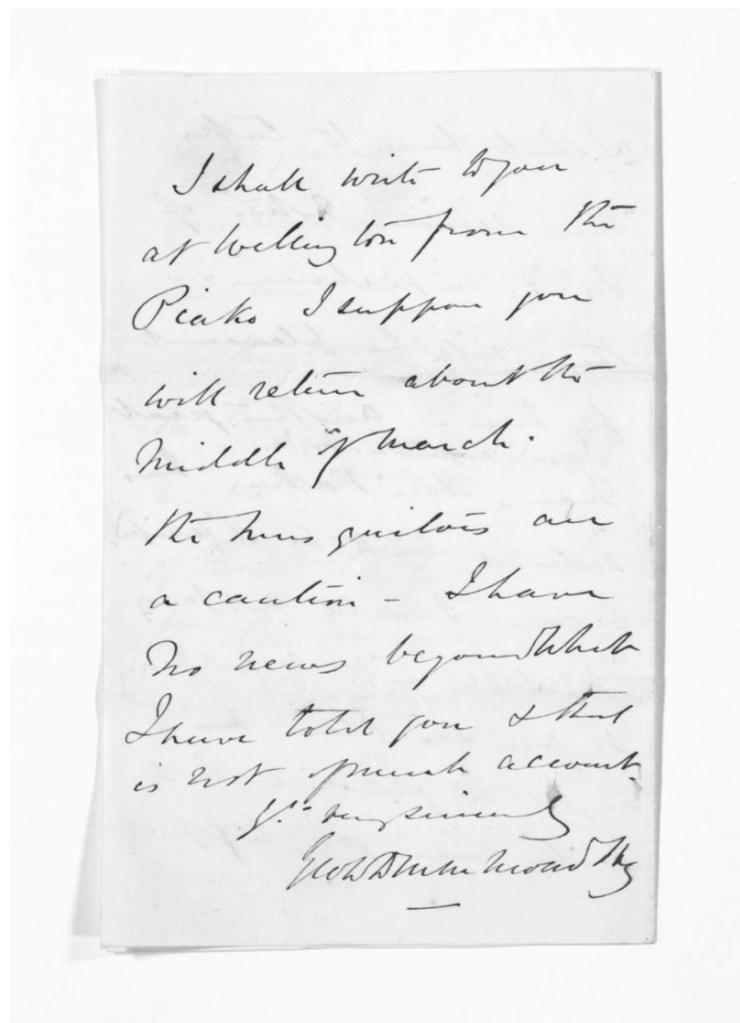 I shall write to you
at Wellington from the
Piako I suppose you
will return about the
Middle of March.
the Musquitoes are
a caution – I have
No news beyond what
I have told you & that
is not of much account.
Yrs very sincerely
Geo W Drummond Hay